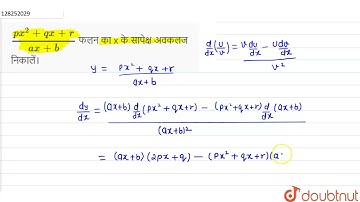 128252029
px² + qx + r / ax + b फलन का x के सापेक्ष अवकलज
निकालें।
d/dx (u/v) = v du/dx - u dv/dx / v²
y = px² + qx + r / ax + b
dy/dx = (ax+b) d/dx (px² + qx + r) - (px² + qx + r) d/dx (ax+b) / (ax+b)²
= (ax+b) (2px + q) - (px² + qx + r) (a
doubtnut